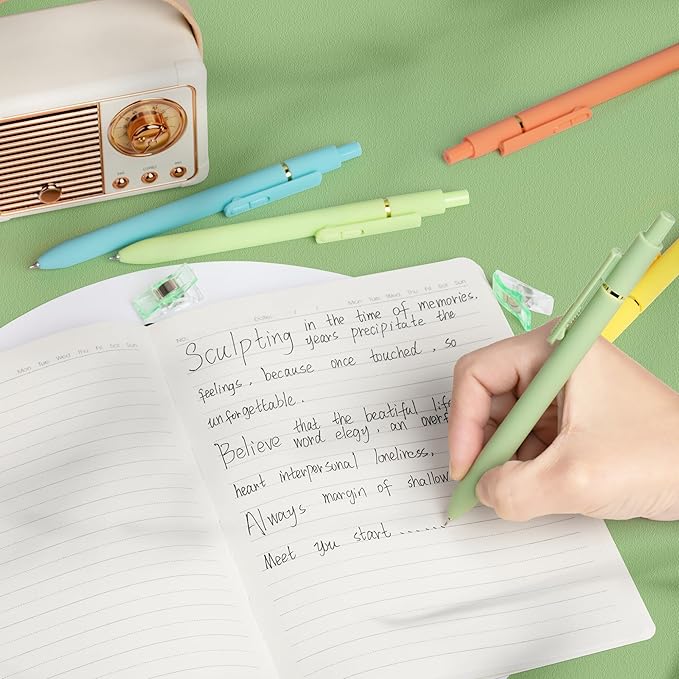 Mon Tue Wed Thu Fri Sat Sun
No. Date: / / Mon Tue Wed Thu Fri Sat Sun
Sculpting in the time of memories.
years precipitate the
feelings, because once touched, so
unforgettable.
Believe that the beatiful life
word elegy, an overf
heart interpersonal loneliness,
Always margin of shallow
Meet you start ......